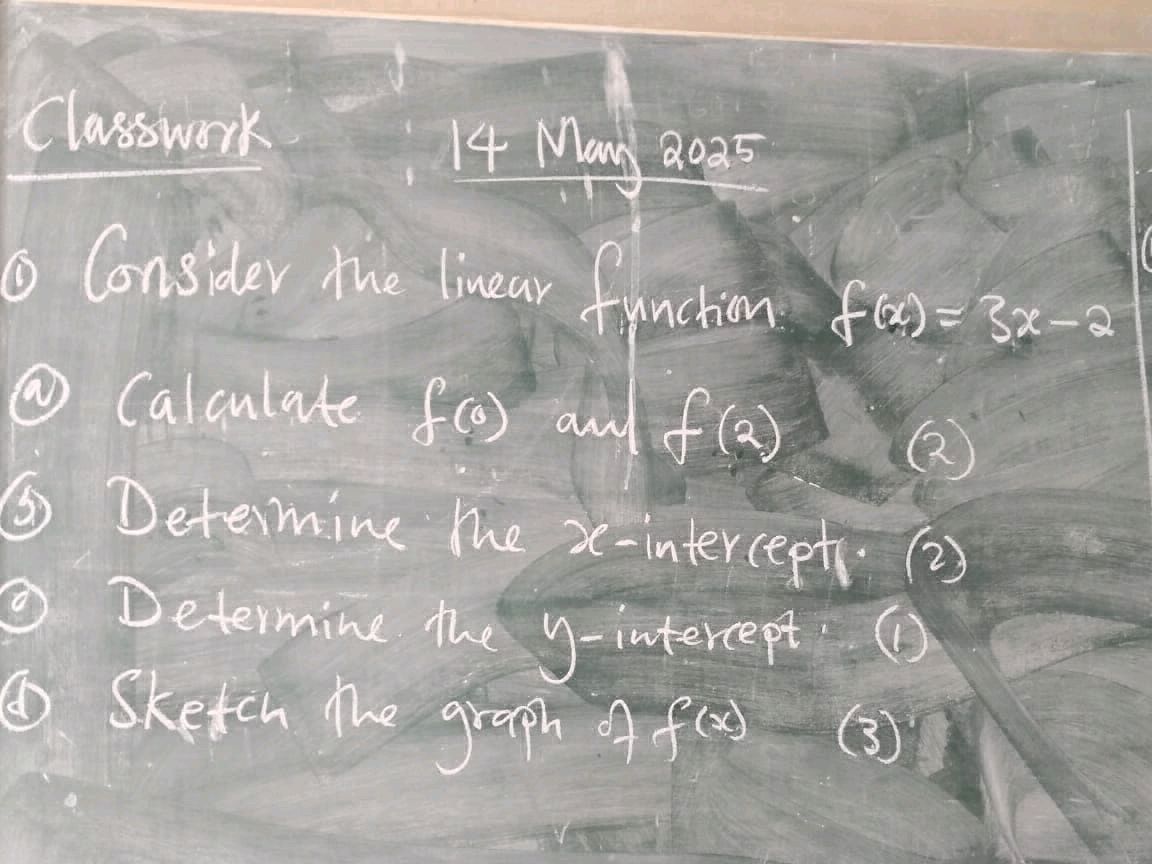 Classwork 14 May 2025
① Consider the linear function f(x) = 3x - 2
ⓐ Calculate f(0) and f(2) (2)
ⓑ Determine the x-intercept. (2)
ⓒ Determine the y-intercept. (1)
ⓓ Sketch the graph of f(x) (3)